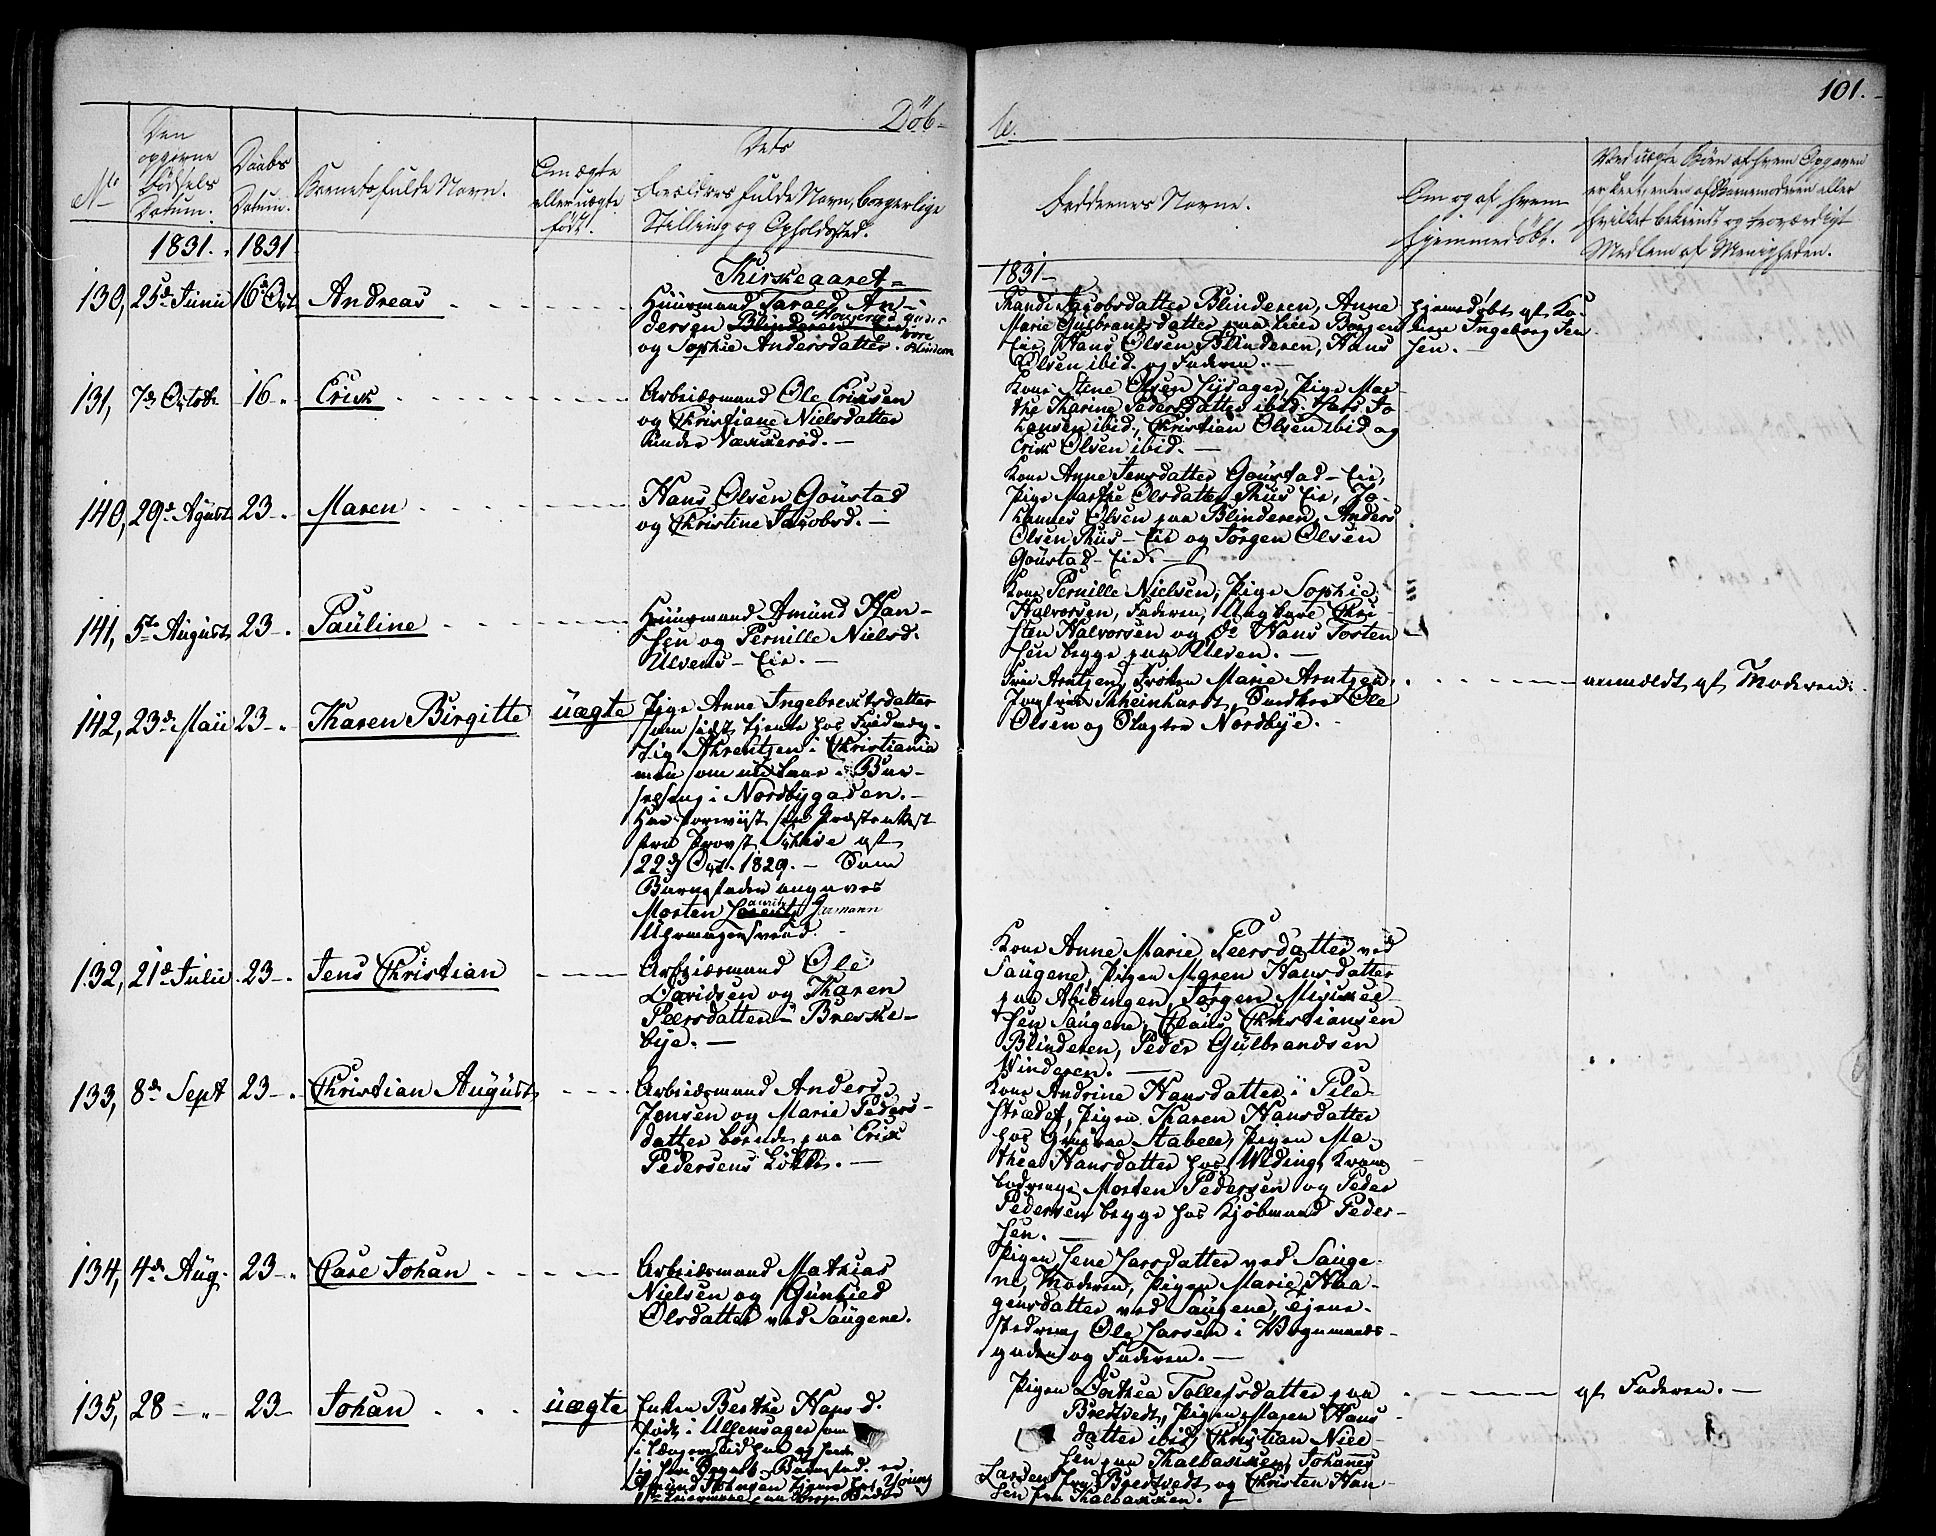 Döb-
te.
101.
No
Den opgivne Födsels Datum.
Daabs Datum.
Barnets fulde Navn.
Om ægte eller uægte födt.
Dets Forældres fulde Navn, borgerlige Stilling og Opholdssted.
Faddernes Navne.
Om og af hvem hjemmedöbt.
Ved uægte Börn af hvem Opgaven er skeet, enten af Barnemoderen eller hvilket bekiendt og troværdigt Medlem af Menigheden.
1831. 1831
130, 25de Junii 16de Oct Andreas
Huusmand Taral An-
dersen Blinderen
og Sophie Andersdatter.
1831
Jacobsdatter Blinderen, Anne
Marie Gulbrandsdatter paa
Eie, Hans Olsen Blinderen, Hans
Olsen ibid. og Faderen.
hjemmedöbt af Ko-
nen Ingeborg Jen
sen.
131, 7de Octobr 16 Erick
Arbeidsmand Ole Ericksen
og Christiane Nielsdatter
under
Kone Stine Olsen Lysager, Pige Mar-
the Karine Pedersdatter ibid. Lars Jo-
hansen ibid., Christian Olsen ibid og
Erick Olsen ibid.
140, 29de Agust 23 Maren
Hans Olsen Goustad
og Christine Jacobsd.
Kone Anne Jensdatter Goustad-Eie,
Pige Marthe Olsdatter Riis Eie, Jo-
hannes Olsen paa Blinderen, Anders
Olsen Riis-Eie og Jörgen Olsen
Goustad-Eie.
141, 5te August 23 Pauline
Huusmand Amund Han-
sen og Pernille Nielsd.
Ulvens-Eie.
Kone Pernille Nielsen, Pige Sophie
Halvorsen, Faderen, Ungkarl Chri-
sten Halvorsen og do Hans Tosten
sen begge paa Ulven.
142, 23de Maii 23 Karen Birgitte uægte
Pige Anne Ingebrektsdatter
som sidst tjente hos
Ahrentzen i Christiania
men som nu laae i Bar-
selseng i Nordbygaden.
Har foreviist sin Præsteattest
fra Provst af
22de Oct. 1829. Som
Barnefader angaves
Morten
Uhrmagersvend.
Fru Arntzen, Fröken Marie Arntzen,
Jomfrue Rheinhardt, Ole
Olsen og Slagter Nordbye.
anmeldt af Moderen.
132, 21de Julii 23 Jens Christian
Arbeidsmand Ole
Davidsen og Karen
Peersdatter i Breske-
bye.
Kone Anne Marie Peersdatter ved
Saugene, Pigen Maren Hansdatter
paa Abildngen, Jörgen Mickel-
sen Saugene, Claus Christiansen
Blinderen, Peder Gulbrandsen
Vinderen.
133, 8de Sept 23 Christian August
Arbeidsmand Anders
Jensen og Marie Peders-
datter boende paa Erick
Pedersens Lökke.
Kone Andrine Hansdatter i Pile-
strædet, Pigen Karen Hansdatter
hos Stabell, Pigen Ma-
thea Hansdatter hos Weding, Kram
bodreng Morten Pedersen og Peder
Pedersen begge hos Kjöbmand Peder-
sen.
134, 4de Aug. 23 Carl Johan
Arbeidsmand Mathias
Nielsen og Gunhild
Olsdatter ved Saugene.
Pigen Lene Larsdatter ved Sauge-
ne, Moderen, Pigen Marie Haa-
gensdatter ved Saugene, Tjene-
stedreng Ole Larsen i Vognmands-
gaden og Faderen.
135, 28 23 Johan uægte
Enken Berthe Hansd.
födt i Ullensager som
i længere Tid har
Barnefad. er
Amund tjener hos Young
Pigen Dorthea Tollefsdatter paa
Bredtvedt, Pigen Maren Hans
datter ibid, Christian Niel-
sen paa Kalbakken, Johannes
Larsen fra Bredtvedt og Christen Han-
sen fra Kalbakken.
af Faderen.